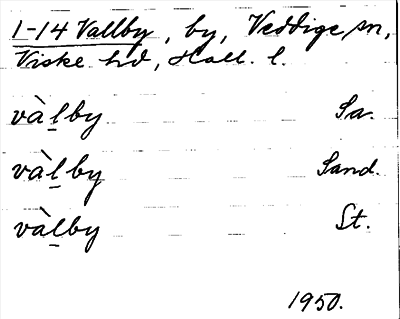 1-14 Vallby, by, Veddige sn,
Viske hd, Hall. l.
vàl̲by Sa.
vàl̲by Sand.
vàl̲by St.
1950.